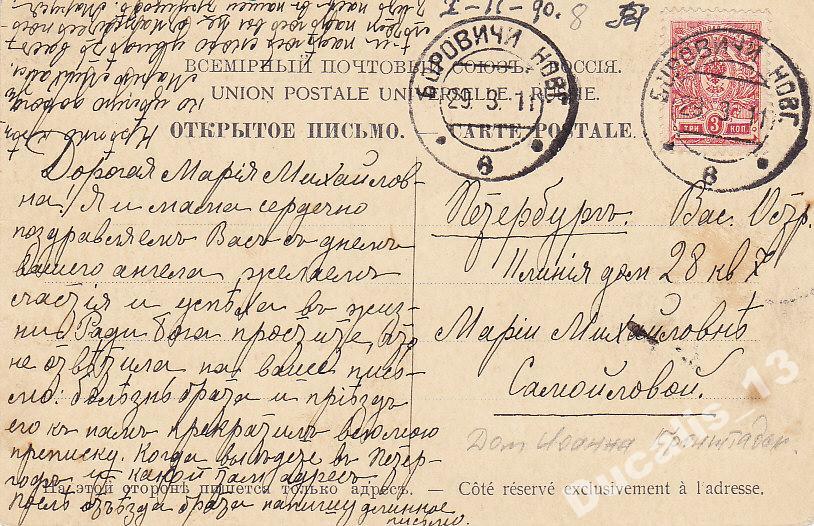 8
ВСЕМІРНЫЙ ПОЧТОВЫЙ СОЮЗЪ. РОССІЯ.
UNION POSTALE UNIVERSELLE. RUSSIE.
ОТКРЫТОЕ ПИСЬМО. — CARTE POSTALE.
БОРОВИЧИ НОВГ.
29.3.11
8
БОРОВИЧИ НОВГ.
29.3.11
8
ТРИ 3 КОП
Дорогая Марія Михайлов-
на! Я и мама сердечно
поздравляемъ Васъ съ днемъ
вашего ангела желаемъ
счастія и успѣха въ жиз-
ни. Ради Бога простите, что
не отвѣтила на ваше пись-
мо. болѣзнь брата и пріѣздъ
его къ намъ прекратилъ всю мою
переписку. Когда выѣдете въ Петер-
гофъ и какой тамъ адресъ.
послѣ отъѣзда брата напишу длинное
письмо.
Петербургъ. Вас. Остр.
11 линія дом 28 кв 7
Маріи Михайловнѣ
Самойловой.
Дом Иоанна Кронштадск.
На этой сторонѣ пишется только адресъ. — Côté réservé exclusivement à l'adresse.
Ducatis_13